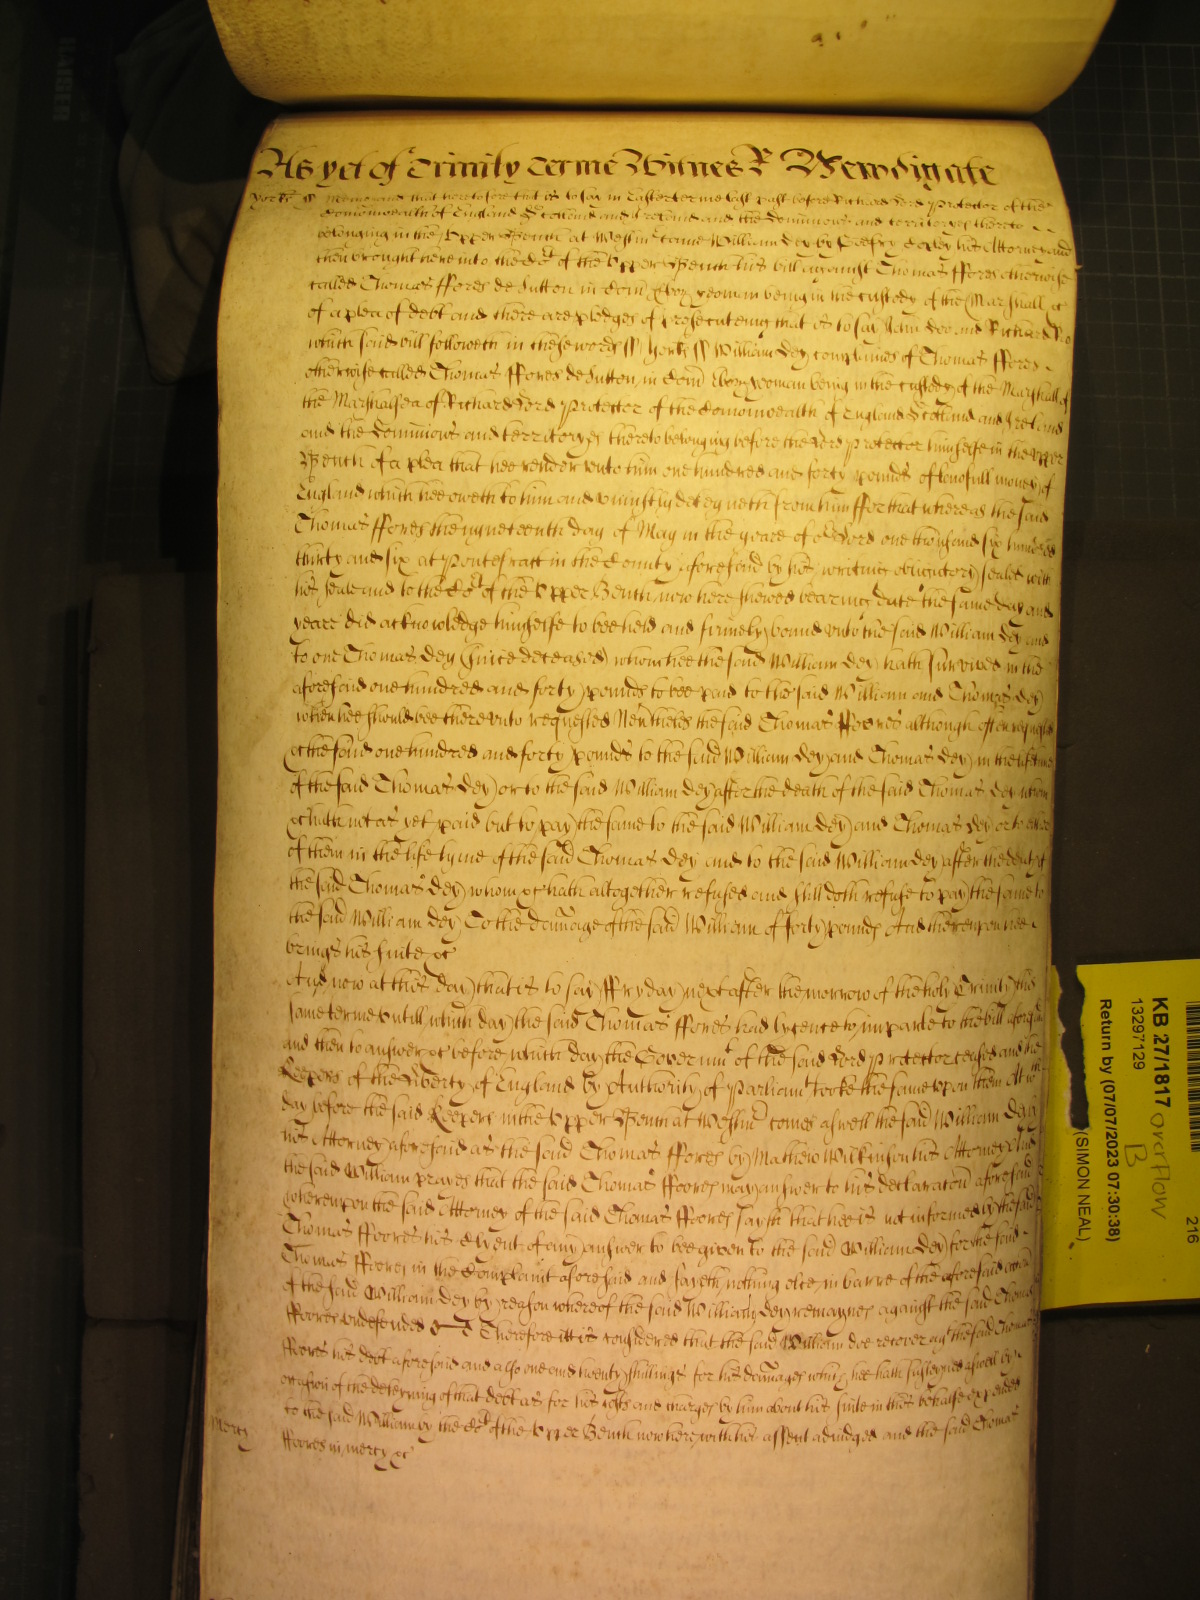 As yet of Trinity Terme Witnes R Newdigate
Yorks ss Memorand that heretofore that is to say in Easter terme last past before Richard Lord Protector of the
Comonwealth of England Scotland and Ireland and the Dominions and territoryes thereto
belonging in the Upper Bench at Westmr came William Dey by Copley his Attorney and
then brought here into the Cort of the Upper Bench his bill against Thomas ffores otherwise
called Thomas ffores de Sutton in Com Ebor yeoman being in the custody of the Marshall &c
of a plea of debt and there are pledges of prosecuteing that is to say John Doe and Richard Roe
which said bill followeth in these words ss Yorks ss William Dey complaines of Thomas ffores
otherwise called Thomas ffores de Sutton in Com Ebor yeoman being in the custody of the Marshall of
the Marshalsea of Richard Lord Protector of the Comonwealth of England Scotland and Ireland
and the Dominions and territoryes thereto belonging before the Lord Protector himselfe in the Upper
Bench of a plea that hee render unto him one hundred and forty pounds of lawfull money of
England which hee oweth to him and uniustly deteyneth from him ffor that whereas the said
Thomas ffores the nyneteenth day of May in the yeare of or Lord one thousand six hundred
thirty and six at Pontefract in the County aforesaid by his writing obligatory sealed with
his seale and to the Cort of the Upper Bench now here shewed bearing date the same day and
yeare did acknowledge himselfe to bee held and firmely bound unto the said William Dey and
to one Thomas Dey (since deceased) whom hee the said William Dey hath survived in the
aforesaid one hundred and forty pounds to bee paid to the said William and Thomas Dey
when hee should bee thereunto requested Nevtheles the said Thomas ffoores although often requested
&c the said one hundred and forty pounds to the said William Dey and Thomas Dey in the life tyme
of the said Thomas Dey or to the said William Dey after the death of the said Thomas Dey whom
&c hath not as yet paid but to pay the same to the said William Dey and Thomas Dey or to either
of them in the life tyme of the said Thomas Dey and to the said William Dey after the death of
the said Thomas Dey whom &c hath altogether refused and still doth refuse to pay the same to
the said William Dey To the damage of the said William of forty pounds And thereupon hee
brings his suite &c
And now at this day that is to say ffryday next after the morrow of the holy Trinity this
same terme untill which day the said Thomas ffores had lycence to imparle to the bill aforesaid
and then to answer &c before which day the Governmt of the said Lord Protector ceased and the
Keepers of the Liberty of England by Authority of Parliamt tooke the same upon them At wch
day before the said Keepers in the Upper Bench at Westmr comes aswell the said William Dey by
his Attorney aforesaid as the said Thomas ffores by Mathew Wilkinson his Attorney And
the said William prayes that the said Thomas ffoores may answer to his declaracon aforesaid
whereupon the said Attorney of the said Thomas ffoores sayth that hee is not informed by the said
Thomas ffoores his Clyent of any answer to bee given to the said William Dey for the said
Thomas ffoores in the Complaint aforesaid and sayeth nothing else in barre of the aforesaid accon
of the said William Dey by reason whereof the said William Dey remaynes against the said Thomas
ffoores undefended &c Therefore itt is considered that the said William doe recover agt the said Thomas
ffoores his debt aforesaid and also one and twenty shillings for his damages which hee hath susteyned aswell by
occasion of the deteyning of that debt as for his costs and charges by him about his suite in this behalfe expended
to the said William by the Cort of the Upper Bench now here with his assent adiudged and the said Thomas
ffoores in mercy &c
Mercy
KB 27/1817 overflow
13297129
B
Return by (07/07/2023 07:30:38)
(SIMON NEAL)
216